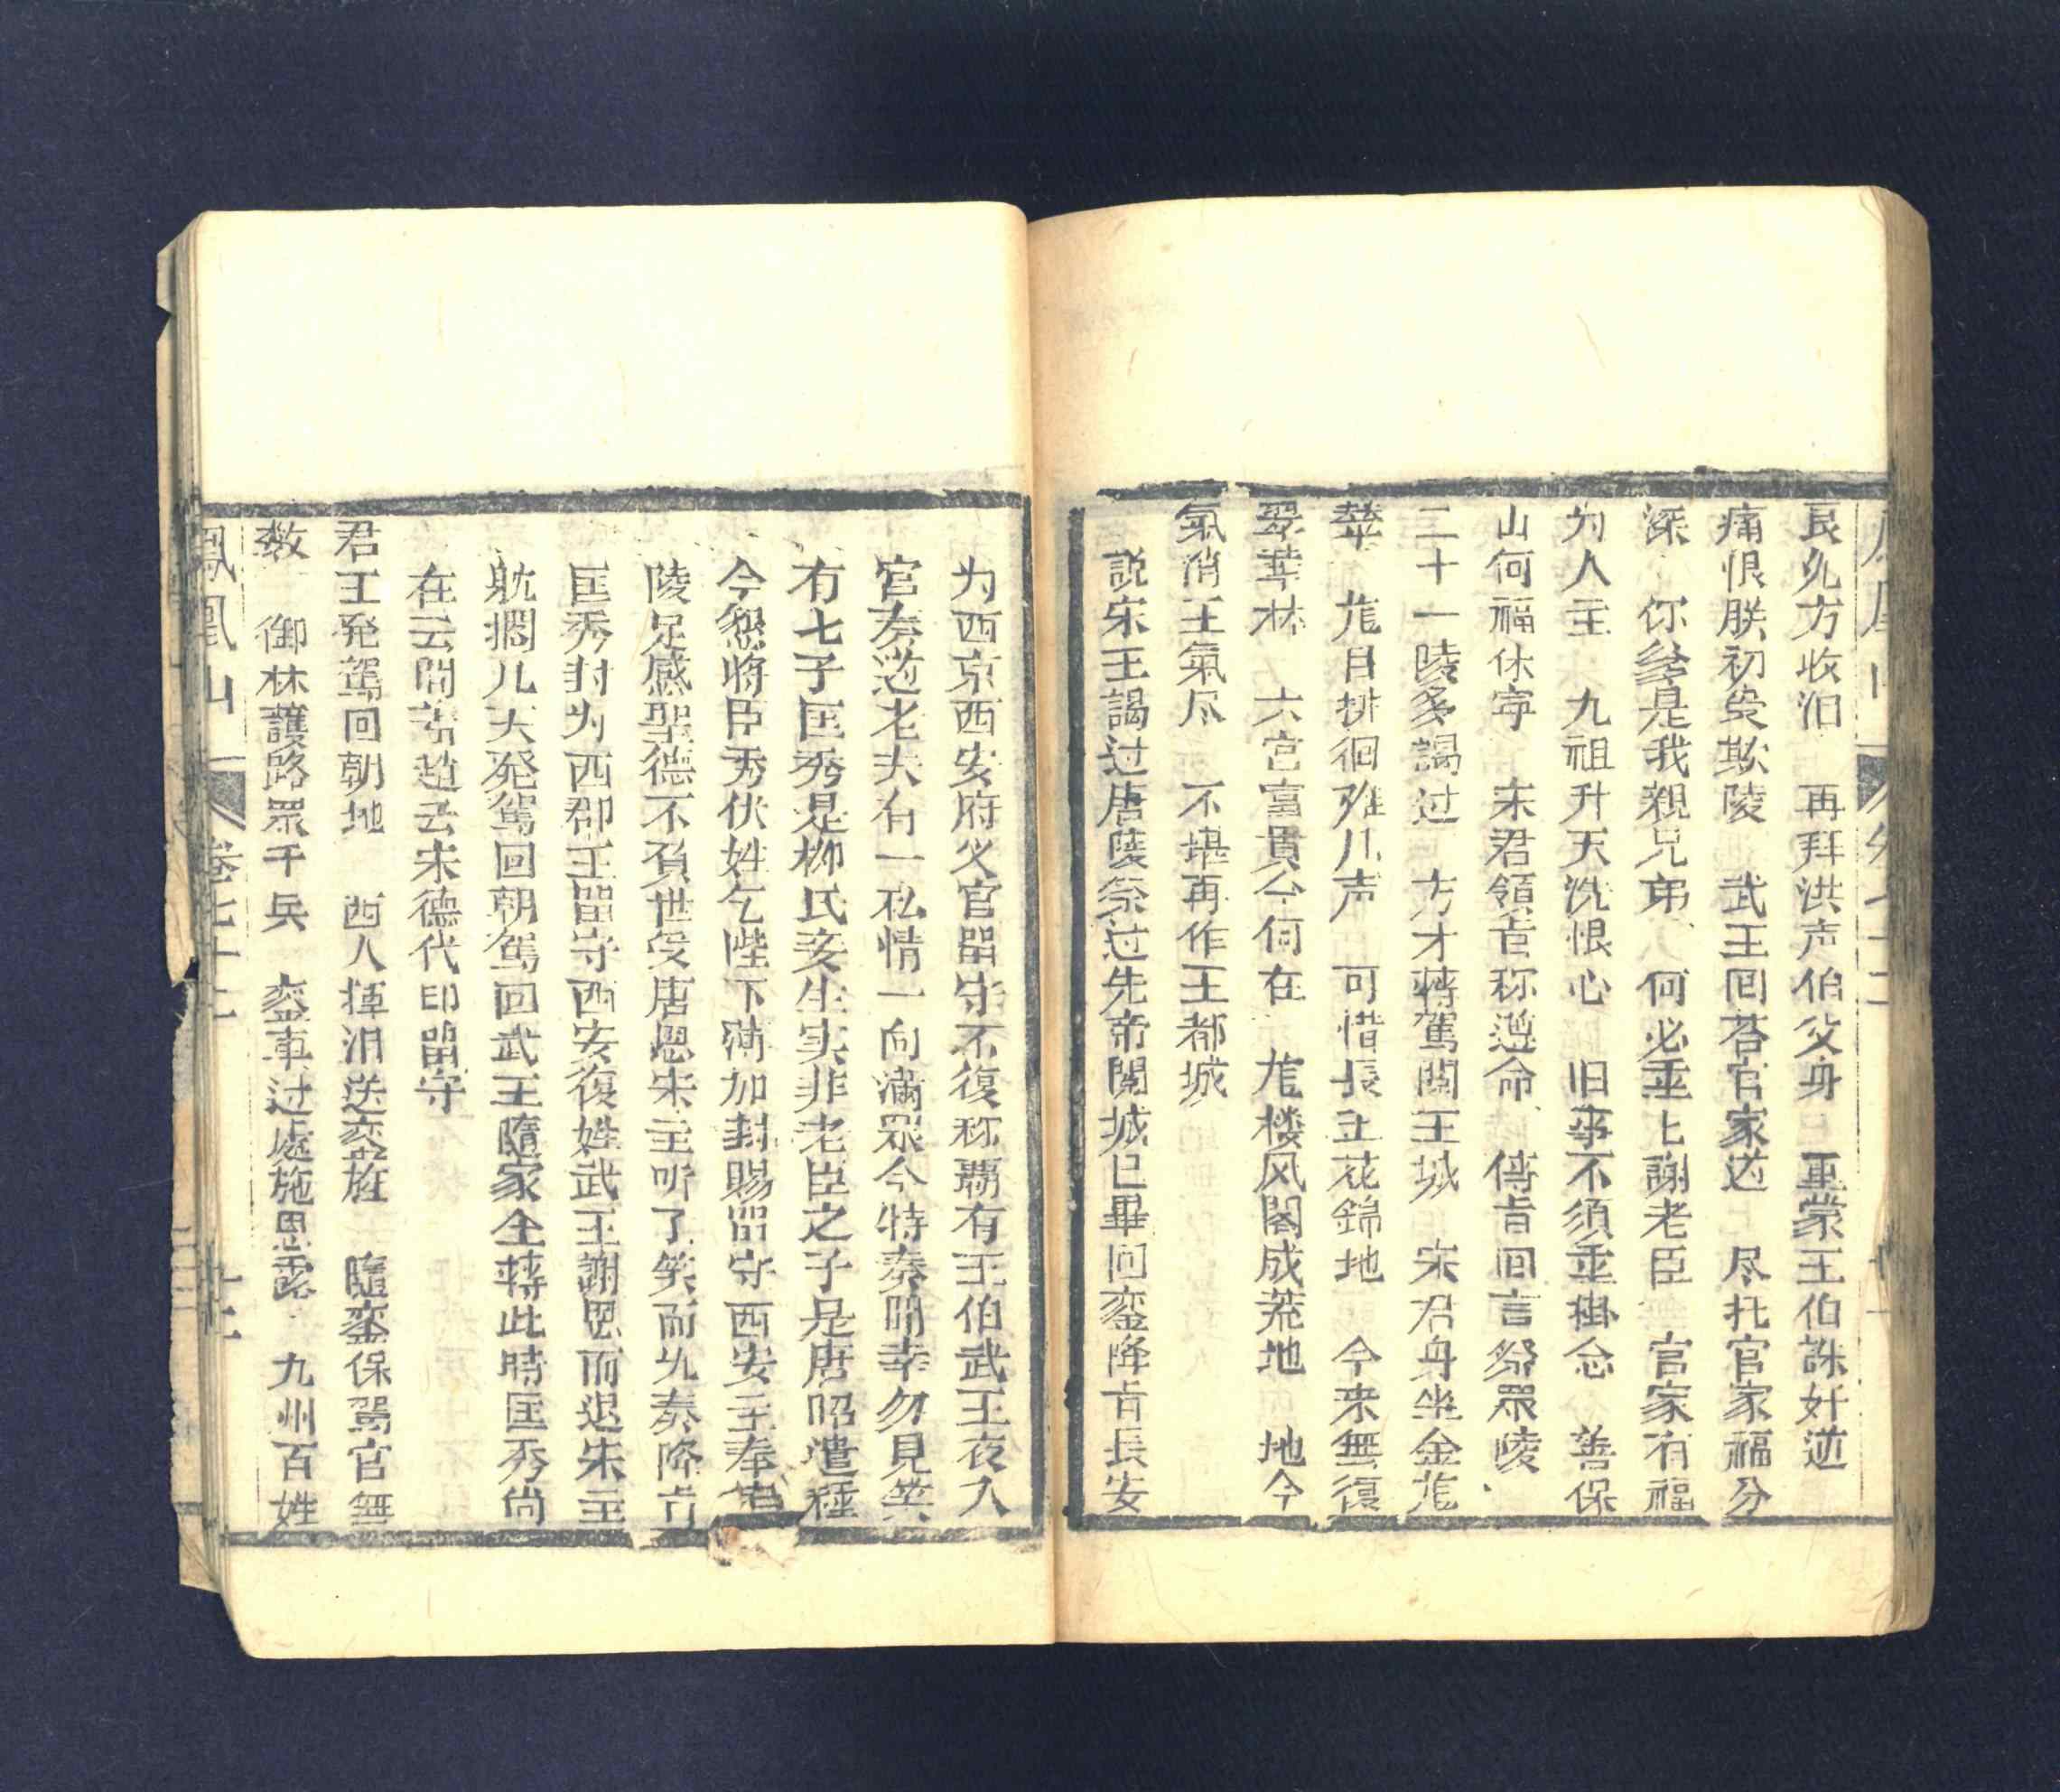 良久方收泪　再拜洪声伯父身　重蒙王伯誅奸逆
痛恨朕初癸欺陵　武王囘荅官家道　尽托官家福分
深　你爹是我親兄弟　何必重上謝老臣　官家有福
为人主　九祖升天洗恨心　旧事不須重掛念　善保
山何福休寧　宋君領旨称遵命　傳旨回言祭眾陵
二十一陵多謁过　方才轉駕閱王城　宋君身坐金龍
輦　龍目排徊难几声　可惜長正花錦地　今来無復
翠華林　六宮富貴今何在　龍楼风閣成荒地　地今
氣消王氣尽　不堪再作王都城
説宋王謁过唐陵祭过先帝閱城已畢回鑾降旨長安
为西京西安府火官畄守不復称覇有王伯武王夜入
宮奏道老夫有一私情一向滿眾今特奏明幸勿見笑
有七子匡秀是柳氏妾生实非老臣之子是唐昭遺種
今懇將臣秀伏姓乞陛下薄加封賜畄守西安王奉
陵足感聖德不負世受唐恩宋主听了笑而允奏降旨
匡秀封为西郡王畄守西安復姓武王謝恩而退朱主
躭擱几天発駕回朝駕回武王隨家全轉此時匡秀尚
在云間 趙云宋德代印畄守
君王発駕回朝地　西人揮泪送鑾旌　隨鑾保駕官無
数　御林護路眾千兵　鑾車过處施恩露　九州百姓
鳳凰山　卷七十二　十二